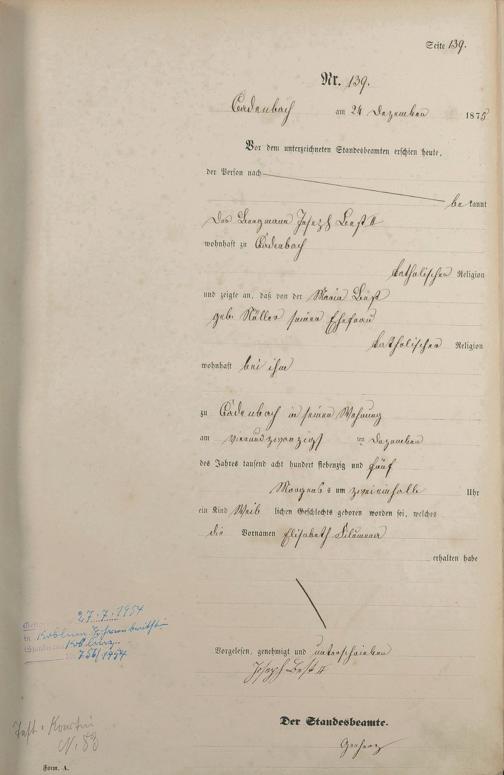 Seite 139.
Nr. 139.
Cadenbach am 24 Dezember 1875
Vor dem unterzeichneten Standesbeamten erschien heute,
der Person nach
be kannt
Der Bergmann Joseph Best II
wohnhaft zu Cadenbach
katholischer Religion
und zeigte an, daß von der Maria Best
geb. Müller seiner Ehefrau
katholischer Religion
wohnhaft bei ihm
zu Cadenbach in seiner Wohnung
am vierundzwanzigs ten Dezember
des Jahres tausend acht hundert siebenzig und fünf
Morgens um zweieinhalb Uhr
ein Kind Weib lichen Geschlechts geboren worden sei, welches
die Vornamen Elisabeth
erhalten habe
27.7.1954
in
756/1954
Vorgelesen, genehmigt und unterschrieben
Joseph Best II
Der Standesbeamte.
Form. A.